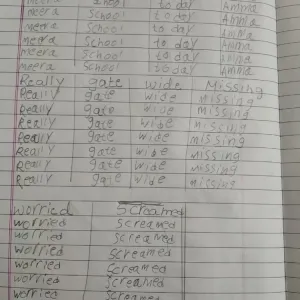 meera School to day Amma
meera School to day Amma
meera School to day Amma
meera School to day Amma
meera School to day Amma
meera School to day Amma
Really gate wide Missing
Really gate wide missing
Really gate wide missing
Really gate wide missing
Really gate wide missing
Really gate wide missing
Really gate wide missing
Really gate wide missing
worried Screamed
worried Screamed
worried Screamed
worried Screamed
worried Screamed
worried Screamed
worried Screamed